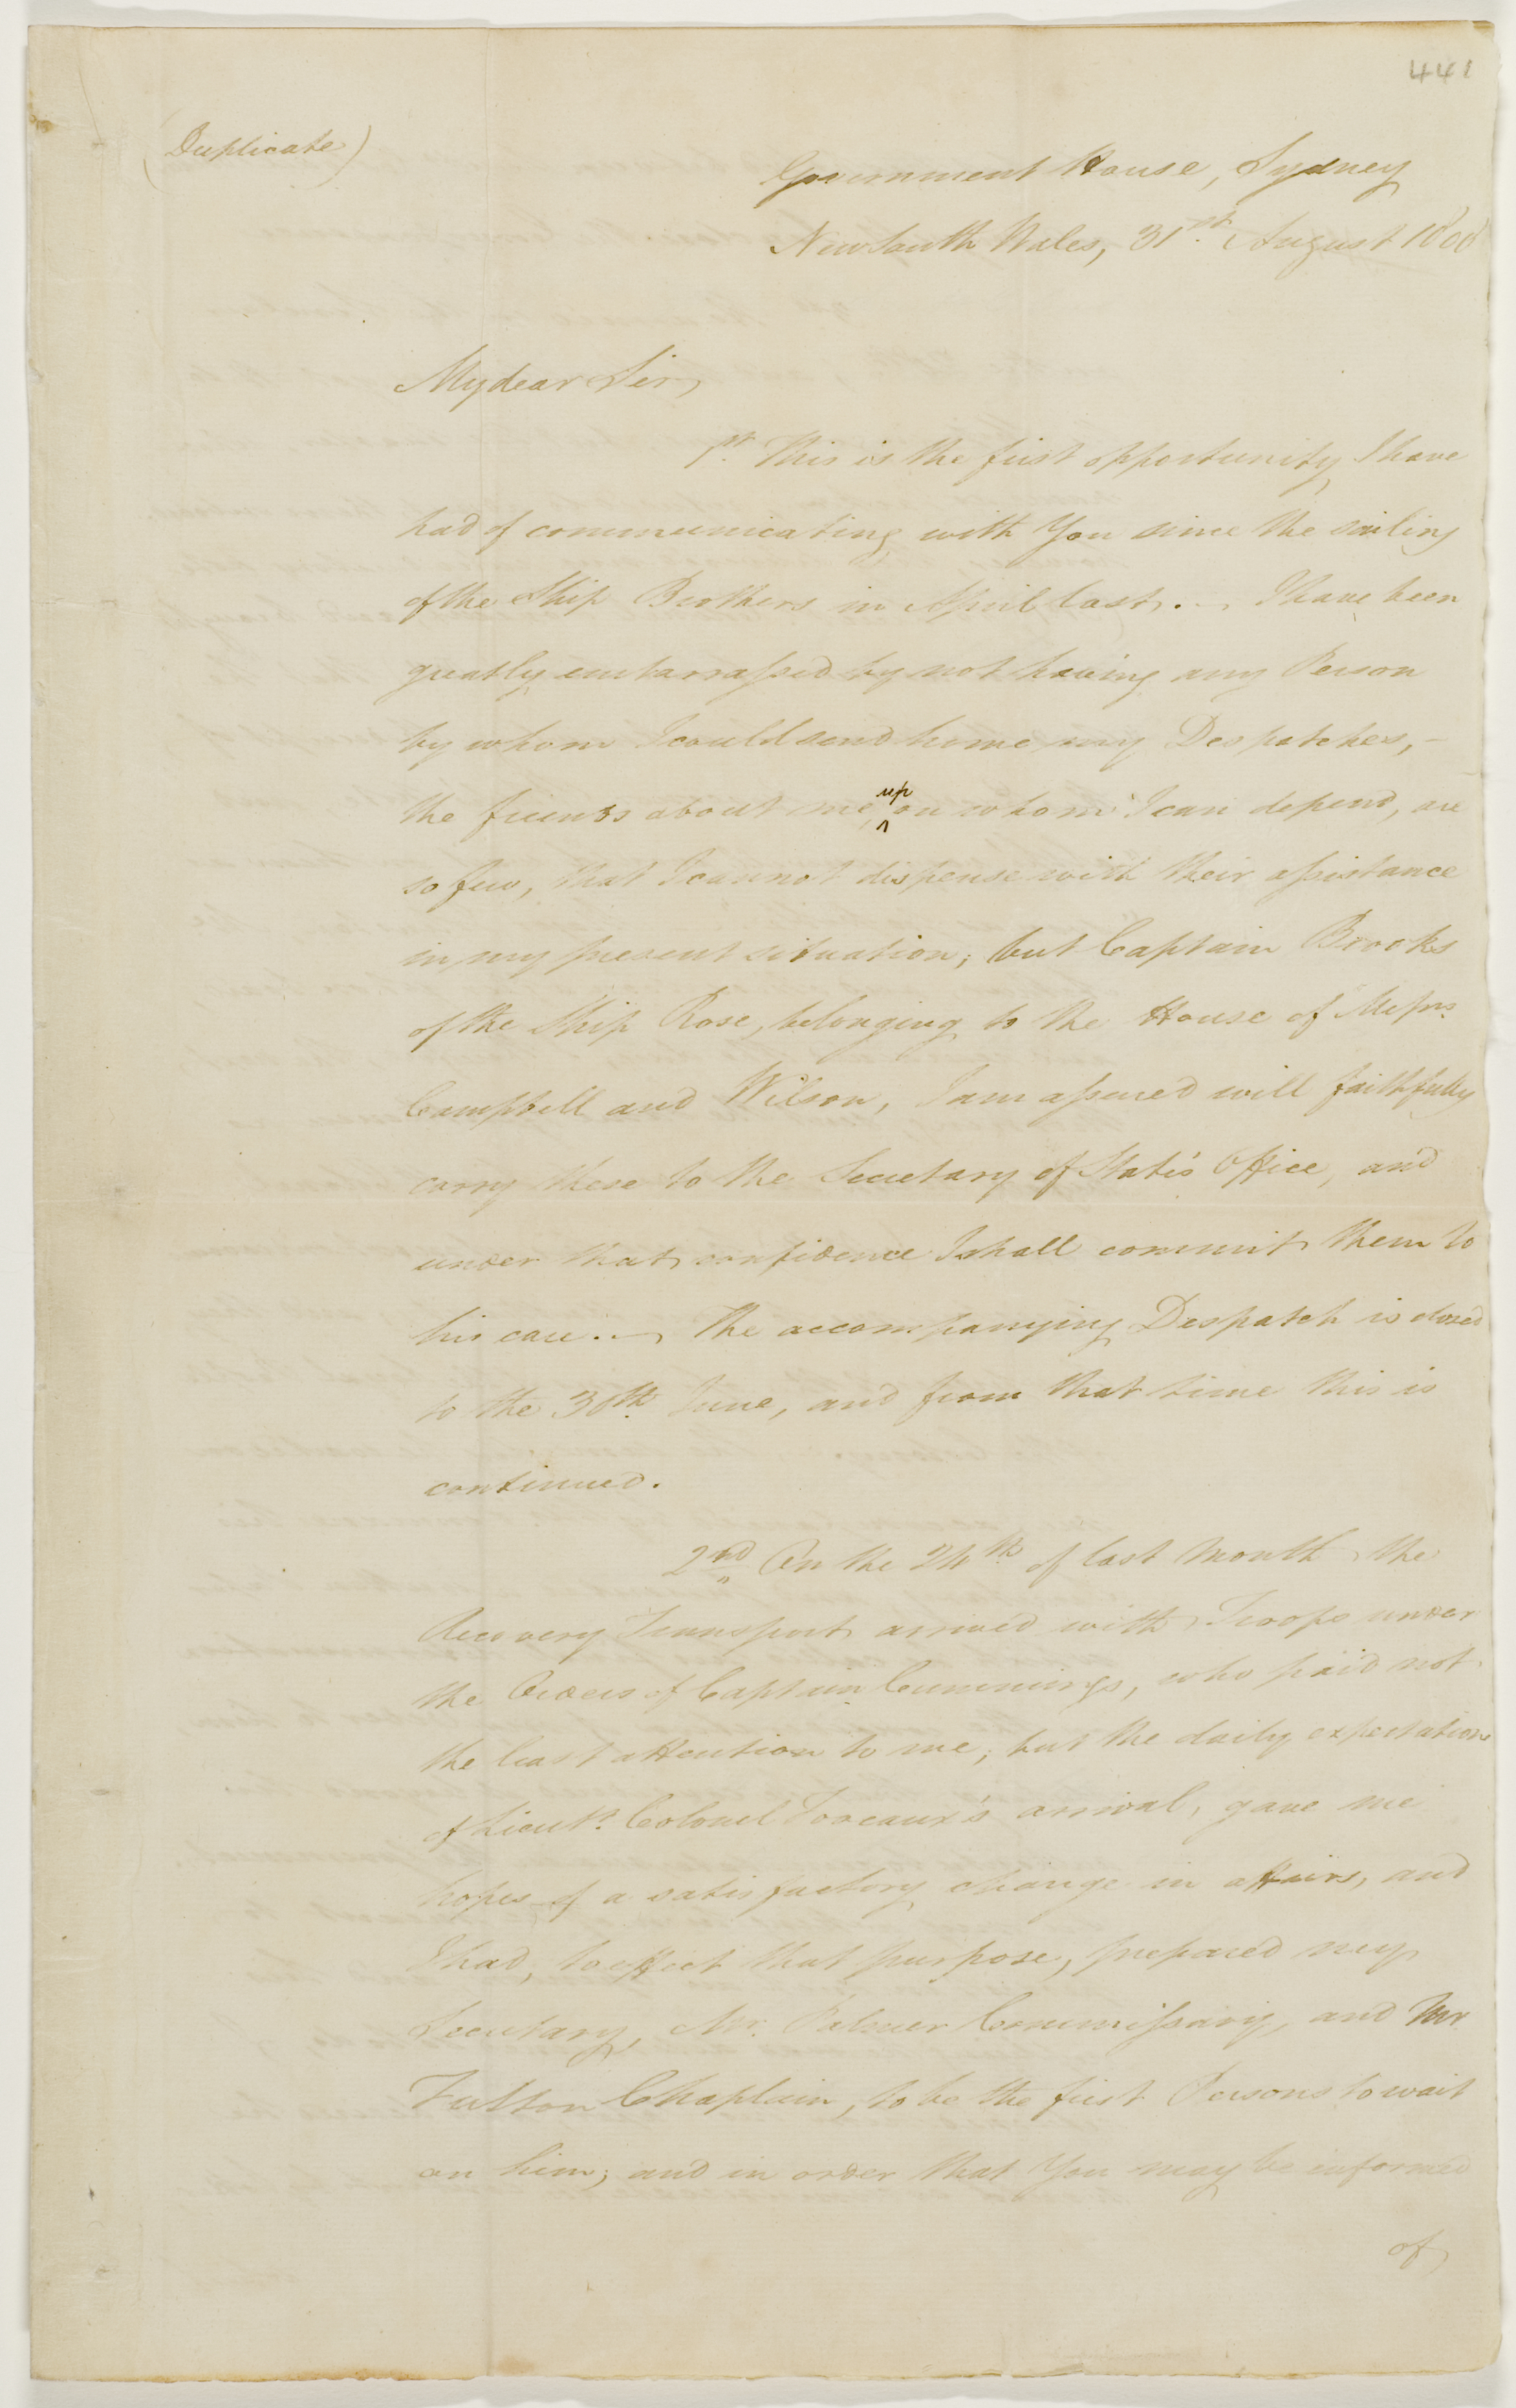 441
(Duplicate)
Government House, Sydney
New South Wales, 31st. August 1808
My dear Sir,
1st. This is the first opportunity I have
had of communicating with You since the sailing
of the Ship Brothers in April last. — I have been
greatly embarrassed by not having any Person
by whom I could send home my Despatches, —
the friends about me, upon whom I can depend, are
so few, that I cannot dispense with their assistance
in my present situation; but Captain Brooks
of the Ship Rose, belonging to the House of Messrs.
Campbell and Wilson, I am assured will faithfully
carry these to the Secretary of State's Office, and
under that confidence I shall commit them to
his care. — The accompanying Despatch is closed
to the 30th. June, and from that time this is
continued.
2nd. On the 24th. of last Month the
Recovery Transport arrived with Troops under
the Orders of Captain Cummings, who paid not
the least attention to me; but the daily expectation
of Lieut. Colonel Foveaux's arrival, gave me
hopes of a satisfactory change in affairs, and
I had, to effect that purpose, prepared my
Secretary, Mr. Palmer Commissary, and Mr
Fulton Chaplain, to be the first Persons to wait
on him; and in order that You may be informed
of